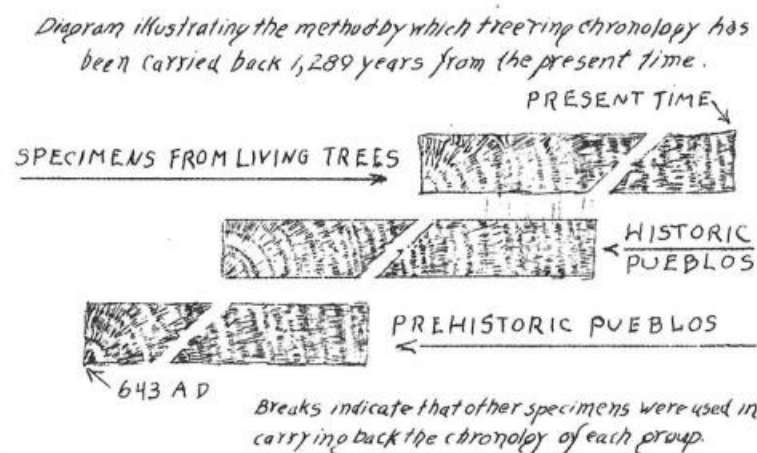 Diagram illustrating the method by which treering chronology has
been carried back 1,289 years from the present time.
PRESENT TIME
SPECIMENS FROM LIVING TREES
HISTORIC
PUEBLOS
PREHISTORIC PUEBLOS
643 AD
Breaks indicate that other specimens were used in
carrying back the chronolgy of each group.